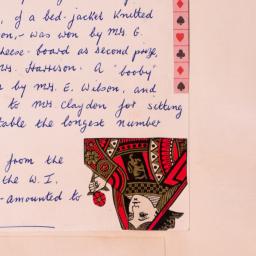 , of a bed-jacket knitted
on,- was won by Mrs. G.
cheese-board as second prize,
Mrs. Harrison. A "booby"
by Mrs. E. Wilson, and
to Mrs Claydon for sitting
table the longest number
from the
the W.I.
-amounted to